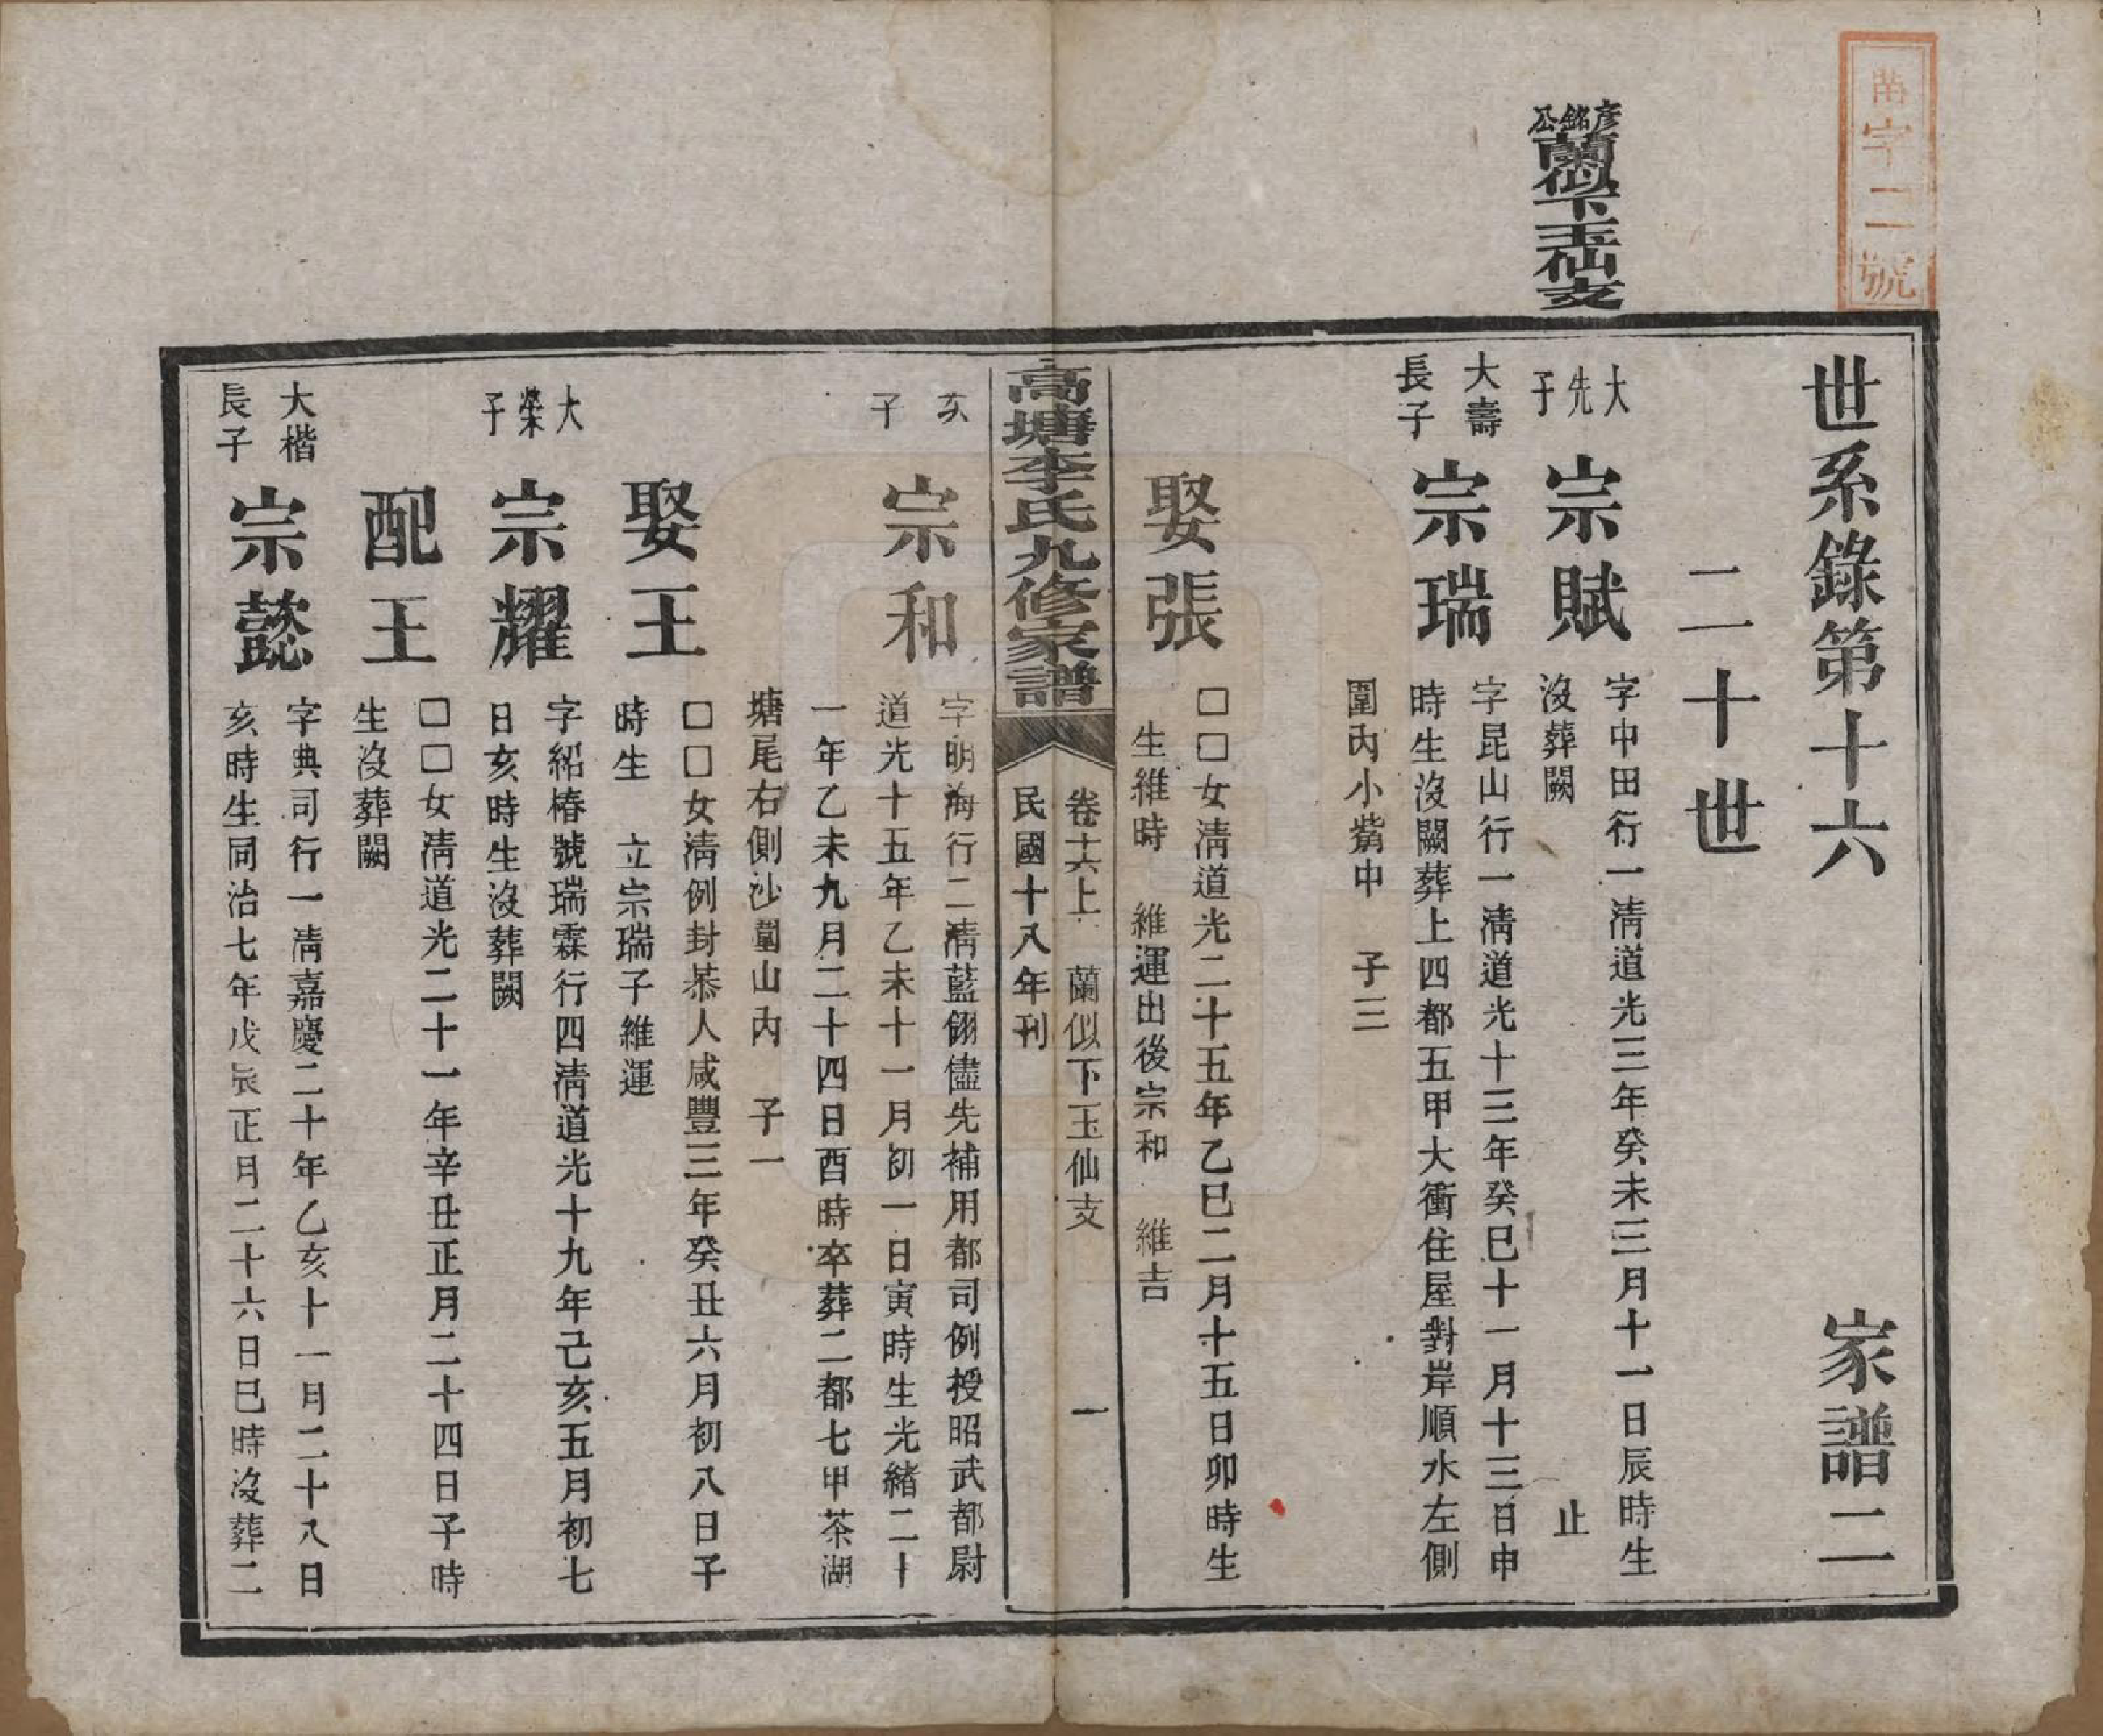 字二號
彥銘公蘭似下玉仙支
世系錄第十六 家譜二
二十世
大先子 宗賦 字中田行一清道光三年癸未三月十一日辰時生
沒葬闕 止
大壽長子 宗瑞 字昆山行一清道光十三年癸巳十一月十三日申
時生沒闕葬上四都五甲大衝住屋對岸順水左側
圍內小嘴中 子三
娶張 □□女清道光二十五年乙巳二月十五日卯時生
生維時 維運出後宗和 維吉
高塘李氏九修家譜 卷十六上 蘭似下玉仙支 一
民國十八年刊
次子 宗和 字明海行二清藍翎儘先補用都司例授昭武都尉
道光十五年乙未十一月初一日寅時生光緒二十
一年乙未九月二十四日酉時卒葬二都七甲茶湖
塘尾右側沙圍山內 子一
娶王 □□女清例封恭人咸豐三年癸丑六月初八日子
時生 立宗瑞子維運
大榮子 宗耀 字紹椿號瑞霖行四清道光十九年己亥五月初七
日亥時生沒葬闕
配王 □□女清道光二十一年辛丑正月二十四日子時
生沒葬闕
大楷長子 宗懿 字典司行一清嘉慶二十年乙亥十一月二十八日
亥時生同治七年戊辰正月二十六日巳時沒葬二